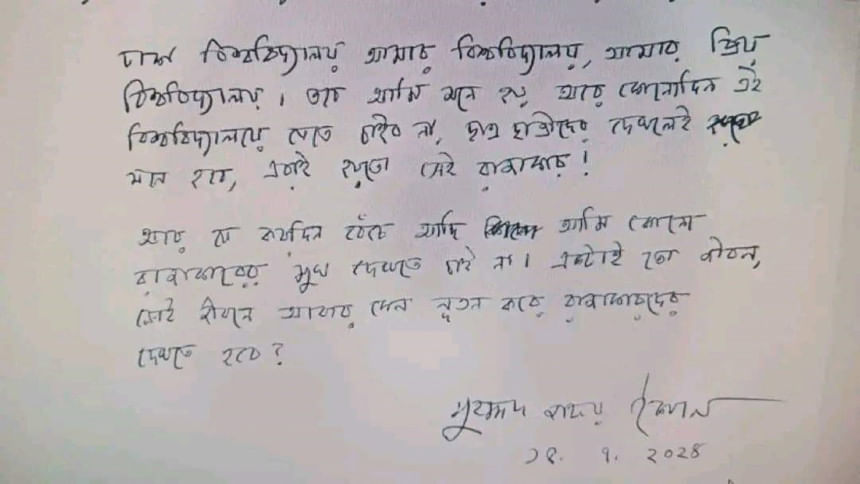 ঢাকা বিশ্ববিদ্যালয় আমার বিশ্ববিদ্যালয়, আমার প্রিয়
বিশ্ববিদ্যালয়। তবে আমি মনে হয় আর কোনোদিন এই
বিশ্ববিদ্যালয়ে যেতে চাইব না, ছাত্র ছাত্রীদের দেখলেই
মনে হবে, এরাই হয়তো সেই রাজাকার!
আর যে কয়দিন বেঁচে আছি আমি কোনো
রাজাকারের মুখ দেখতে চাই না। একটাই তো জীবন,
সেই জীবনে আবার কেন নূতন করে রাজাকারদের
দেখতে হবে?
মুহম্মদ জাফর ইকবাল
১৪. ৭. ২০২৪